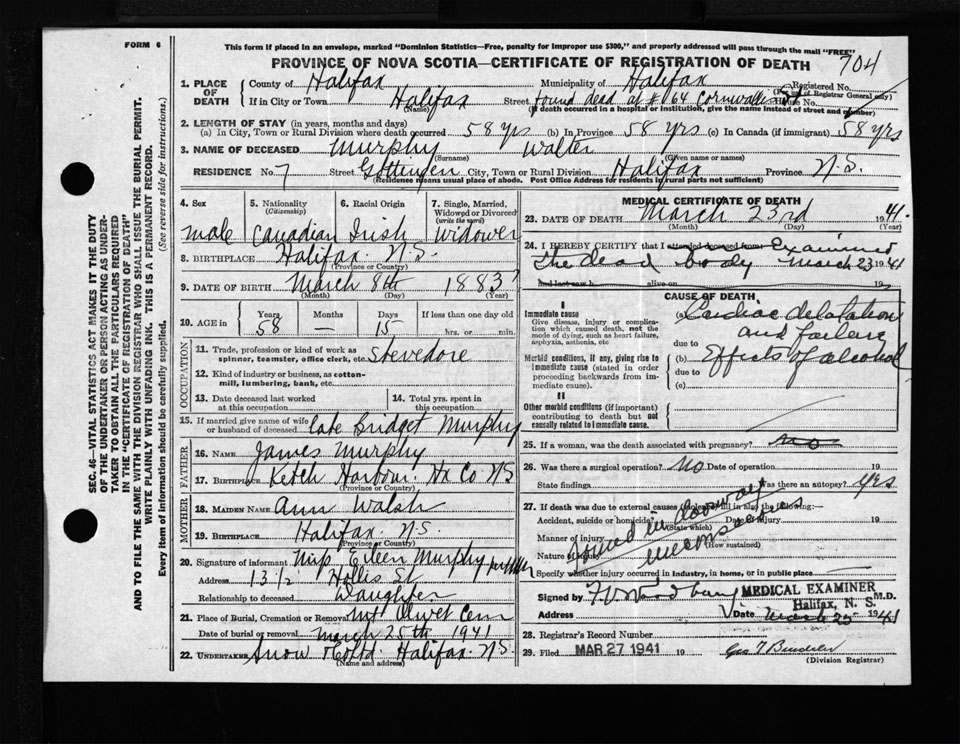 FORM 6
This form if placed in an envelope, marked "Dominion Statistics—Free, penalty for improper use $300," and properly addressed will pass through the mail "FREE"
PROVINCE OF NOVA SCOTIA—CERTIFICATE OF REGISTRATION OF DEATH 704
1. PLACE OF DEATH
County of Halifax Municipality of Halifax Registered No.
(For use of Registrar General only)
If in City or Town Halifax Street found dead at # 64 Cornwallis St House No.
(Name) (If death occurred in a hospital or institution, give the name instead of street and number)
2. LENGTH OF STAY (in years, months and days)
(a) In City, Town or Rural Division where death occurred 58 yrs (b) In Province 58 yrs (c) In Canada (if immigrant) 58 yrs
3. NAME OF DECEASED Murphy Walter
(Surname) (Given name or names)
RESIDENCE No. 7 Street Gottingen City, Town or Rural Division Halifax Province N.S.
(Residence means usual place of abode. Post Office Address for residents in rural parts not sufficient)
4. Sex 5. Nationality (Citizenship) 6. Racial Origin 7. Single, Married, Widowed or Divorced (write the word)
male Canadian Irish Widower
8. BIRTHPLACE Halifax N.S.
(Province or Country)
9. DATE OF BIRTH March 8th 1883
(Month) (Day) (Year)
10. AGE in Years Months Days If less than one day old
58 — 15 hrs. or min.
OCCUPATION
11. Trade, profession or kind of work as spinner, teamster, office clerk, etc. Stevedore
12. Kind of industry or business, as cotton-mill, lumbering, bank, etc.
13. Date deceased last worked at this occupation
14. Total yrs. spent in this occupation
15. If married give name of wife or husband of deceased late Bridget Murphy
FATHER
16. NAME James Murphy
17. BIRTHPLACE Ketch Harbour Hx Co NS
(Province or Country)
MOTHER
18. MAIDEN NAME Ann Walsh
19. BIRTHPLACE Halifax N.S.
(Province or Country)
20. Signature of informant Miss Eileen Murphy
Address 13 1/2 Hollis St
Relationship to deceased Daughter
21. Place of Burial, Cremation or Removal Mt Olivet Cem
Date of burial or removal March 25th 1941
22. UNDERTAKER Snow & Co Ltd. Halifax N.S.
(Name and address)
MEDICAL CERTIFICATE OF DEATH
23. DATE OF DEATH March 23rd 1941
(Month) (Day) (Year)
24. I HEREBY CERTIFY that I attended deceased from Examined
the dead body March 23 1941
and last saw h alive on 19
CAUSE OF DEATH
I
Immediate cause
Give disease, injury or complication which caused death, not the mode of dying, such as heart failure, asphyxia, asthenia, etc
(a) Cardiac dilatation and failure
due to
Morbid conditions, if any, giving rise to immediate cause (stated in order proceeding backwards from immediate cause).
(b) Effects of alcohol
due to
(c)
II
Other morbid conditions (if important) contributing to death but not causally related to immediate cause.
25. If a woman, was the death associated with pregnancy? no
26. Was there a surgical operation? No Date of operation 19
State findings Was there an autopsy? Yes
27. If death was due to external causes (violence) fill in also the following:—
Accident, suicide or homicide? Date of injury 19
(State which)
Manner of injury
(How sustained)
Nature of injury
found in doorway unconscious
Specify whether injury occurred in industry, in home, or in public place
Signed by M.D.
MEDICAL EXAMINER
Halifax, N. S.
Address Date March 25 1941
28. Registrar's Record Number
29. Filed MAR 27 1941 19
(Division Registrar)
SEC. 46—VITAL STATISTICS ACT MAKES IT THE DUTY
OF THE UNDERTAKER OR PERSON ACTING AS UNDER-
TAKER TO OBTAIN ALL THE PARTICULARS REQUIRED
IN THE "CERTIFICATE OF REGISTRATION OF DEATH"
AND TO FILE THE SAME WITH THE DIVISION REGISTRAR WHO SHALL ISSUE THE BURIAL PERMIT.
WRITE PLAINLY WITH UNFADING INK. THIS IS A PERMANENT RECORD.
Every item of information should be carefully supplied. (See reverse side for instructions.)